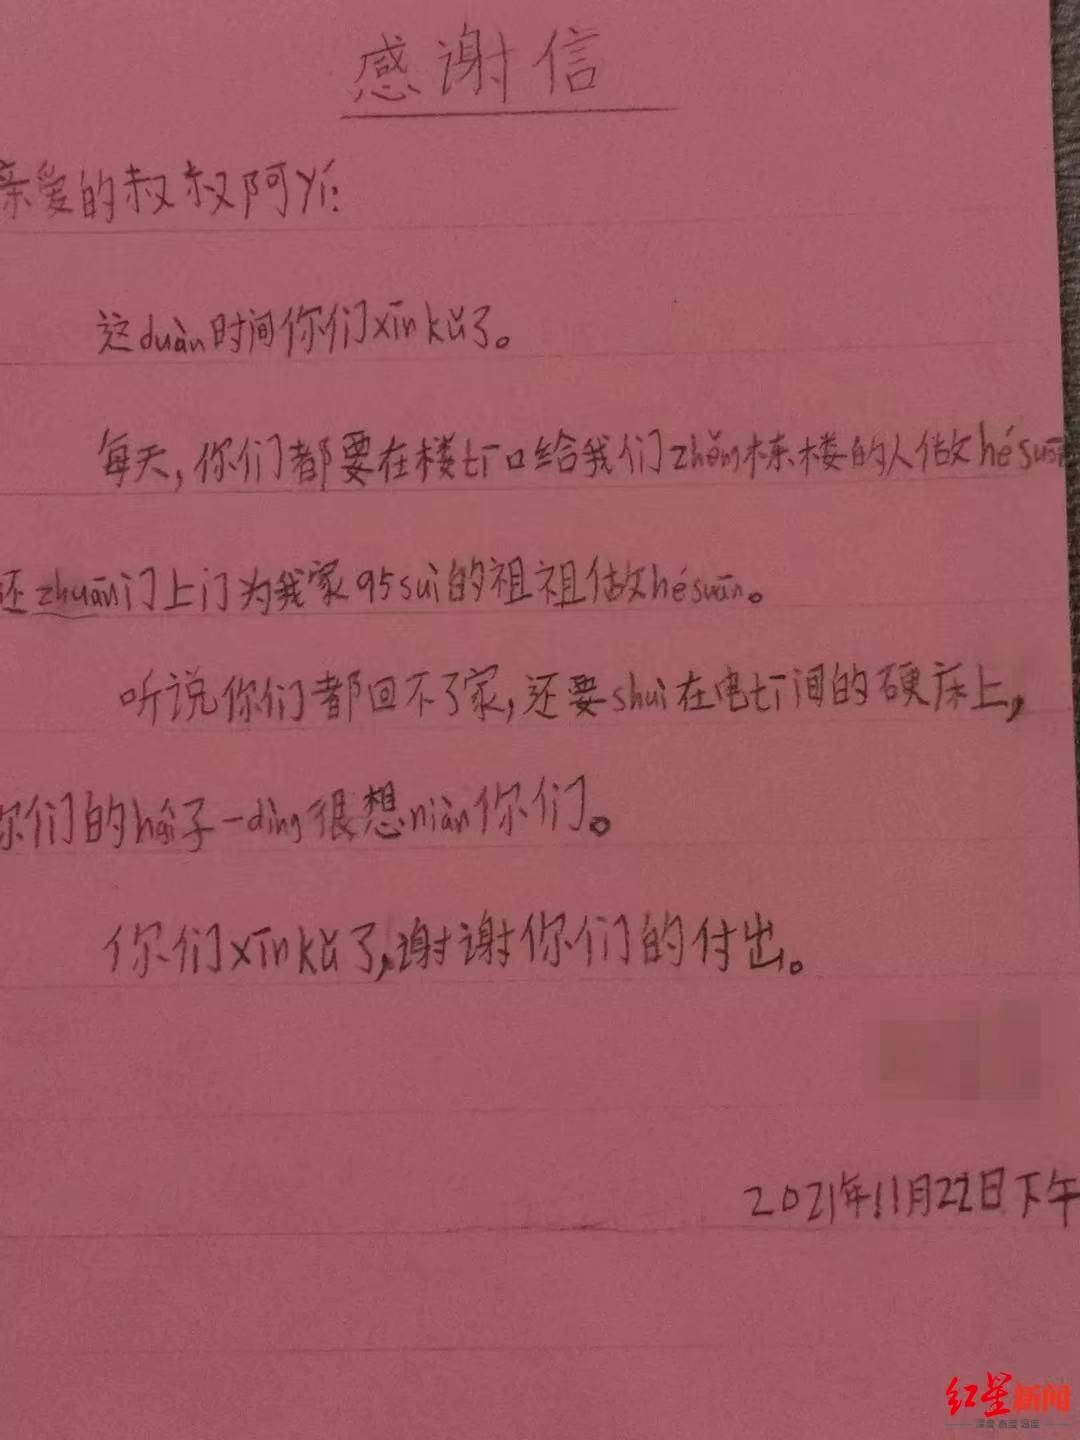 感谢信
亲爱的叔叔阿yí:
这duàn时间你们xīn kǔ了。
每天,你们都要在楼tī口给我们zhěng栋楼的人做hé suān
还zhuān门上门为我家95suì的祖祖做hé suān。
听说你们都回不了家,还要shuì在电tī间的硬床上,
你们的hái子一dìng很想niàn你们。
你们xīn kǔ了,谢谢你们的付出。
2021年11月22日下午
红星新闻
深度 态度 温度